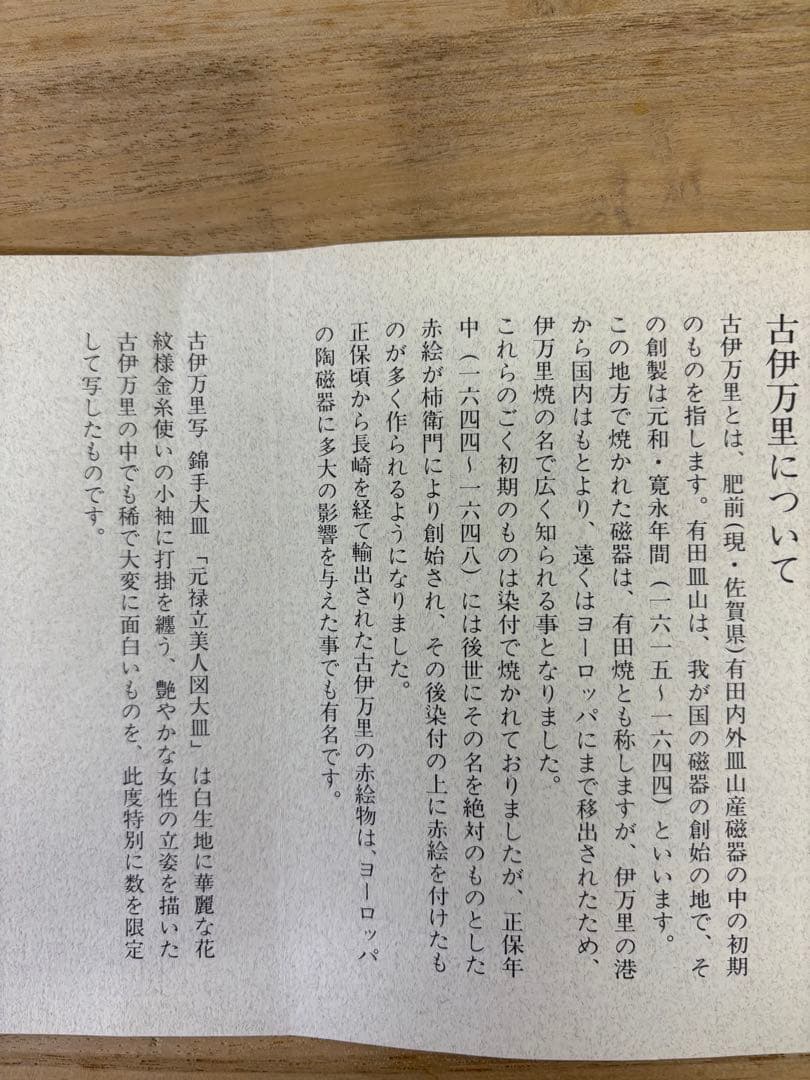 古伊万里について
古伊万里とは、肥前(現・佐賀県)有田内外皿山産磁器の中の初期
のものを指します。有田皿山は、我が国の磁器の創始の地で、そ
の創製は元和・寛永年間(一六一五〜一六四四)といいます。
この地方で焼かれた磁器は、有田焼とも称しますが、伊万里の港
から国内はもとより、遠くはヨーロッパにまで移出されたため、
伊万里焼の名で広く知られる事となりました。
これらのごく初期のものは染付で焼かれておりましたが、正保年
中(一六四四〜一六四八)には後世にその名を絶対のものとした
赤絵が柿衛門により創始され、その後染付の上に赤絵を付けたも
のが多く作られるようになりました。
正保頃から長崎を経て輸出された古伊万里の赤絵物は、ヨーロッパ
の陶磁器に多大の影響を与えた事でも有名です。
古伊万里写 錦手大皿 「元禄立美人図大皿」 は白生地に華麗な花
紋様金糸使いの小袖に打掛を纏う、艶やかな女性の立姿を描いた
古伊万里の中でも稀で大変に面白いものを、此度特別に数を限定
して写したものです。